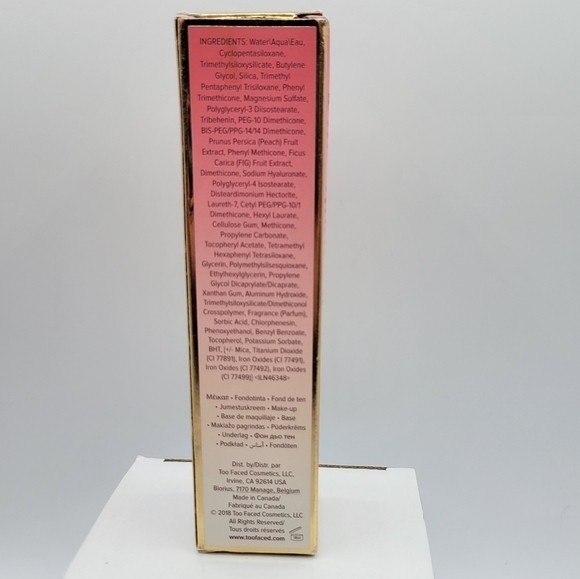 INGREDIENTS: Water\Aqua\Eau,
Cyclopentasiloxane,
Trimethylsiloxysilicate, Butylene
Glycol, Silica, Trimethyl
Pentaphenyl Trisiloxane, Phenyl
Trimethicone, Magnesium Sulfate,
Polyglyceryl-3 Diisostearate,
Tribehenin, PEG-10 Dimethicone,
BIS-PEG/PPG-14/14 Dimethicone,
Prunus Persica (Peach) Fruit
Extract, Phenyl Methicone, Ficus
Carica (FIG) Fruit Extract,
Dimethicone, Sodium Hyaluronate,
Polyglyceryl-4 Isostearate,
Disteardimonium Hectorite,
Laureth-7, Cetyl PEG/PPG-10/1
Dimethicone, Hexyl Laurate,
Cellulose Gum, Methicone,
Propylene Carbonate,
Tocopheryl Acetate, Tetramethyl
Hexaphenyl Tetrasiloxane,
Glycerin, Polymethylsilsesquioxane,
Ethylhexylglycerin, Propylene
Glycol Dicaprylate/Dicaprate,
Xanthan Gum, Aluminum Hydroxide,
Trimethylsiloxysilicate/Dimethiconol
Crosspolymer, Fragrance (Parfum),
Sorbic Acid, Chlorphenesin,
Phenoxyethanol, Benzyl Benzoate,
Tocopherol, Potassium Sorbate,
BHT, [+/- Mica, Titanium Dioxide
(CI 77891), Iron Oxides (CI 77491),
Iron Oxides (CI 77492), Iron Oxides
(CI 77499)] <ILN46348>
Μέικαπ • Fondotinta • Fond de ten
• Jumestuskreem • Make-up
• Base de maquillaje • Base
• Makiažo pagrindas • Púderkrém
• Underlag • Фон дьо тен
• Podklad • أساس • Fondöten
Dist. by/Distr. par
Too Faced Cosmetics, LLC,
Irvine, CA 92614 USA
Biorius, 7170 Manage, Belgium
Made in Canada/
Fabriqué au Canada
© 2018 Too Faced Cosmetics, LLC
All Rights Reserved/
Tous droits réservés
www.toofaced.com